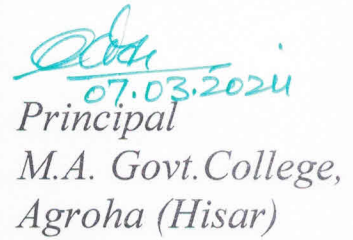 07.03.2024
Principal
M.A. Govt.College,
Agroha (Hisar)